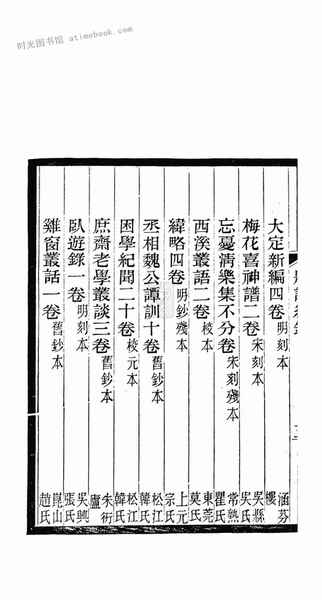 时光图书馆 atimebook.com
大定新編四卷 明刻本 涵芬樓
梅花喜神譜二卷 宋刻本 吳縣吳氏
忘憂清樂集不分卷 宋刻殘本 常熟瞿氏
西溪叢語二卷 校本 東莞莫氏
緯略四卷 明鈔殘本 上元宗氏
丞相魏公譚訓十卷 舊鈔本 松江韓氏
困學紀聞二十卷 校元本 松江韓氏
庶齋老學叢談三卷 舊鈔本 朱衎廬
臥遊錄一卷 明刻本 吳興張氏
雞窗叢話一卷 舊鈔本 崑山趙氏